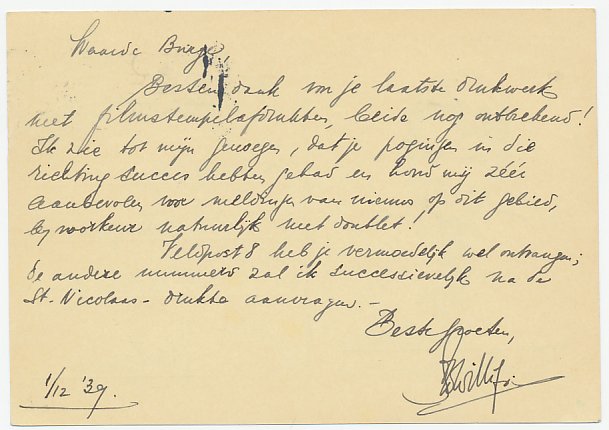 Waarde Burger,
Besten dank voor je laatste drukwerk
met filmstempelafdrukken, beide nog ontbrekend!
Ik zie tot mijn genoegen, dat je pogingen in die
richting succes hebben gehad en houd mij zéér
aanbevolen voor meldingen van nieuws op dit gebied,
bij voorkeur natuurlijk met doublet!
Veldpost 8 heb je vermoedelijk wel ontvangen;
de andere nummers zal ik successievelijk na de
St. Nicolaas-drukte aanvragen. -
Beste groeten,
1/12 '39.